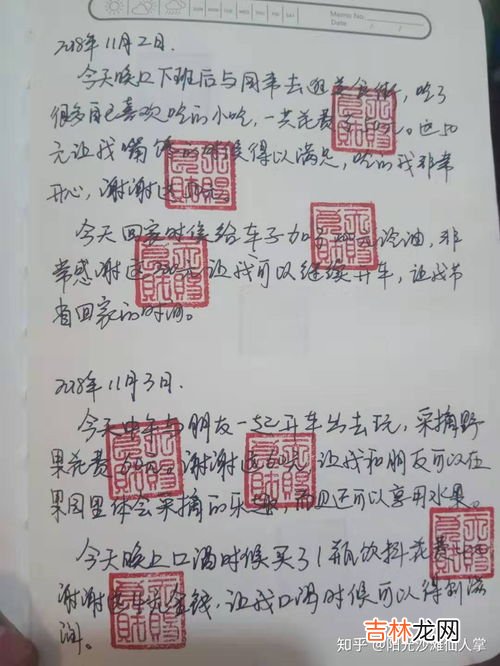 SUN MON TUE WED THU FRI SAT
Memo No.
Date / /
2018年11月2日.
今天晚上下班后与同事去逛美食街，吃了
很多自己喜欢吃的小吃，一共花费了50元。这50
元让我嘴馋的时候得以满足，吃的我非常
开心，谢谢这
今天回家时候给车子加了200元冷油，非
常感谢这200元让我可以继续开车，让我节
省回家的时间。
2018年11月3日.
今天中午与朋友一起开车出去玩，采摘野
果花费60元，谢谢这60元，让我和朋友可以在
果园里体会采摘的乐趣，而且还可以享用水果。
今天晚上口渴时候买了1瓶饮料花费
谢谢这 金钱，让我口渴时候可以得到滋
润。
知乎 @阳光沙滩仙人掌
吉林龙网